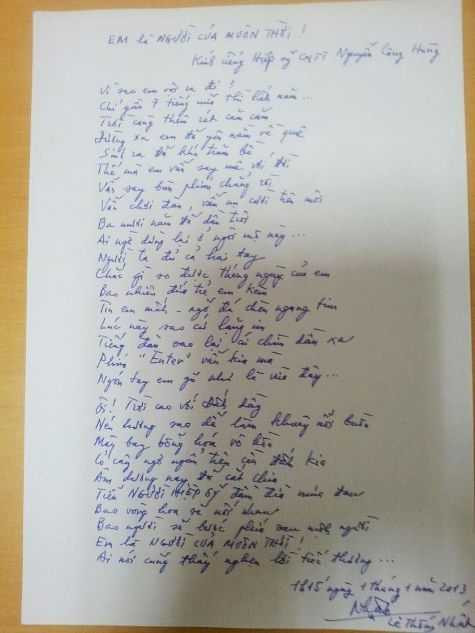 EM là NGƯỜI CỦA MUÔN THỜI!
Kính viếng Hiệp sỹ CNTT Nguyễn Công Hùng
Vì sao em vội ra đi!
Chỉ gần 7 tiếng nữa thì hết năm...
Trời càng thêm rét căm căm
Đường xa em đã yên nằm về quê
Sinh ra đã khó trăm bề
Thế mà em vẫn say mê với đời
Vẫn say bàn phím chẳng rời
Vẫn chơi đàn, vẫn nụ cười trên môi
Ba mươi năm đã dần trôi
Ai ngờ dừng lại ở ngôi mộ này...
Người ta đủ cả hai tay
Chắc gì so được tháng ngày của em
Bao nhiêu đứa trẻ em kèm
Tin em mất - ngỡ đá chèn ngang tim
Lúc này sao cứ lặng im
Tiếng đàn sao lại cứ chìm dần xa
Phím "Enter" vẫn kia mà
Ngón tay em gõ như là vừa đây...
Ôi! Trời cao với đất dày
Nén hương sao để làm khuây nỗi buồn
Mây bay bỗng hóa vô hồn
Cỏ cây ngơ ngẩn tiễn con đến kia
Âm dương nay đã cắt chia
Tiễn NGƯỜI HIỆP SỸ đầm đìa mưa tuôn
Bao vòng hoa và nỗi
Bao người sẽ bước phía sau một người
Em là NGƯỜI CỦA MUÔN THỜI!
Ai nói cũng thấy nghẹn lời tiếc thương...
1h15 ngày 1 tháng 1 năm 2013
Lê Thống Nhất